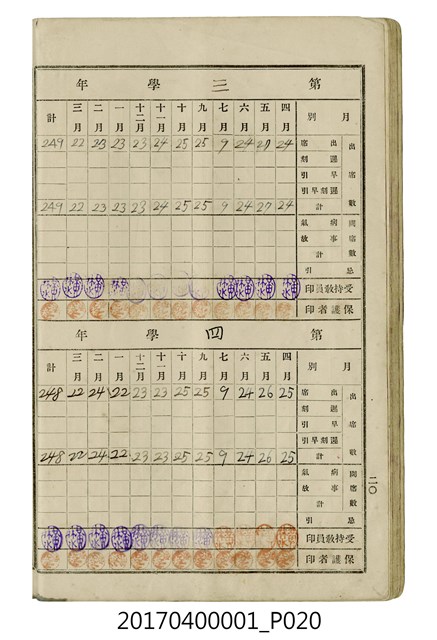 第三學年
月別 四月 五月 六月 七月 九月 十月 十一月 十二月 一月 二月 三月 計
出席數
出席 24 27 24 9 25 25 24 23 23 23 22 249
遲刻
早引
遲刻早引
計 24 27 24 9 25 25 24 23 23 23 22 249
闕席數
病氣
事故
計
忌引
受持教員印
保護者印
第四學年
月別 四月 五月 六月 七月 九月 十月 十一月 十二月 一月 二月 三月 計
出席數
出席 25 26 24 9 25 25 23 23 22 24 22 248
遲刻
早引
遲刻早引
計 25 26 24 9 25 25 23 23 22 24 22 248
闕席數
病氣
事故
計
忌引
受持教員印
保護者印
二〇
20170400001_P020